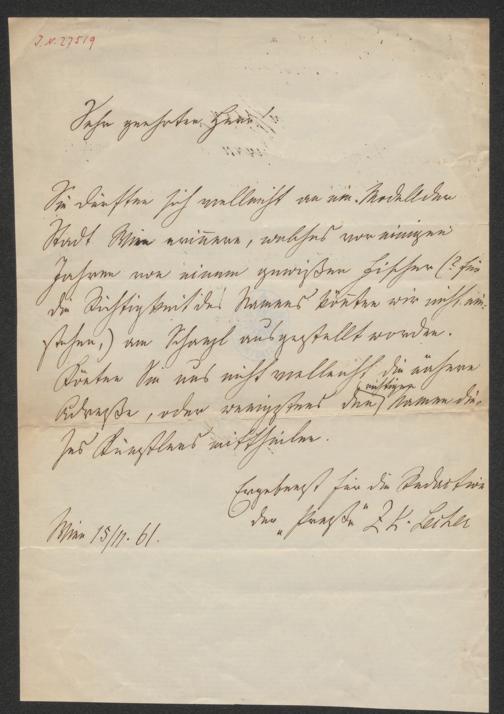 J.N. 27519
Sehr geehrter Herr!
Sie dürften sich vielleicht an ein Modell der
Stadt Wien erinnern, welches vor einigen
Jahren von einem gewißen Fischer (? für
die Richtigkeit des Namens könten wir nicht ein-
stehen,) am Schanzl ausgestellt worden.
Könten Sie uns nicht vielleicht die nähere
Adreße, oder wenigstens den richtigen Namen die-
ses Künstlers mittheilen.
Ergebenst für die Redaction
der „Preße“ Z. K. Lecher
Wien 15/11. 61.